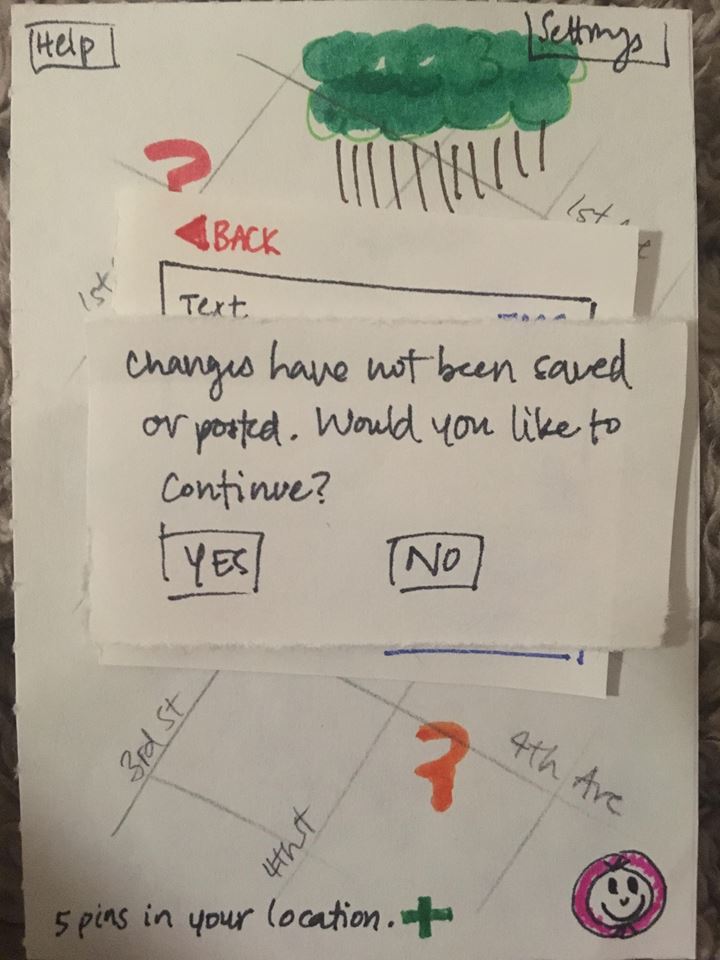 Help
Settings
1st
1st
BACK
Text
Changes have not been saved
or posted. Would you like to
Continue?
YES
NO
3rd St
4th Ave
4th St
5 pins in your location.